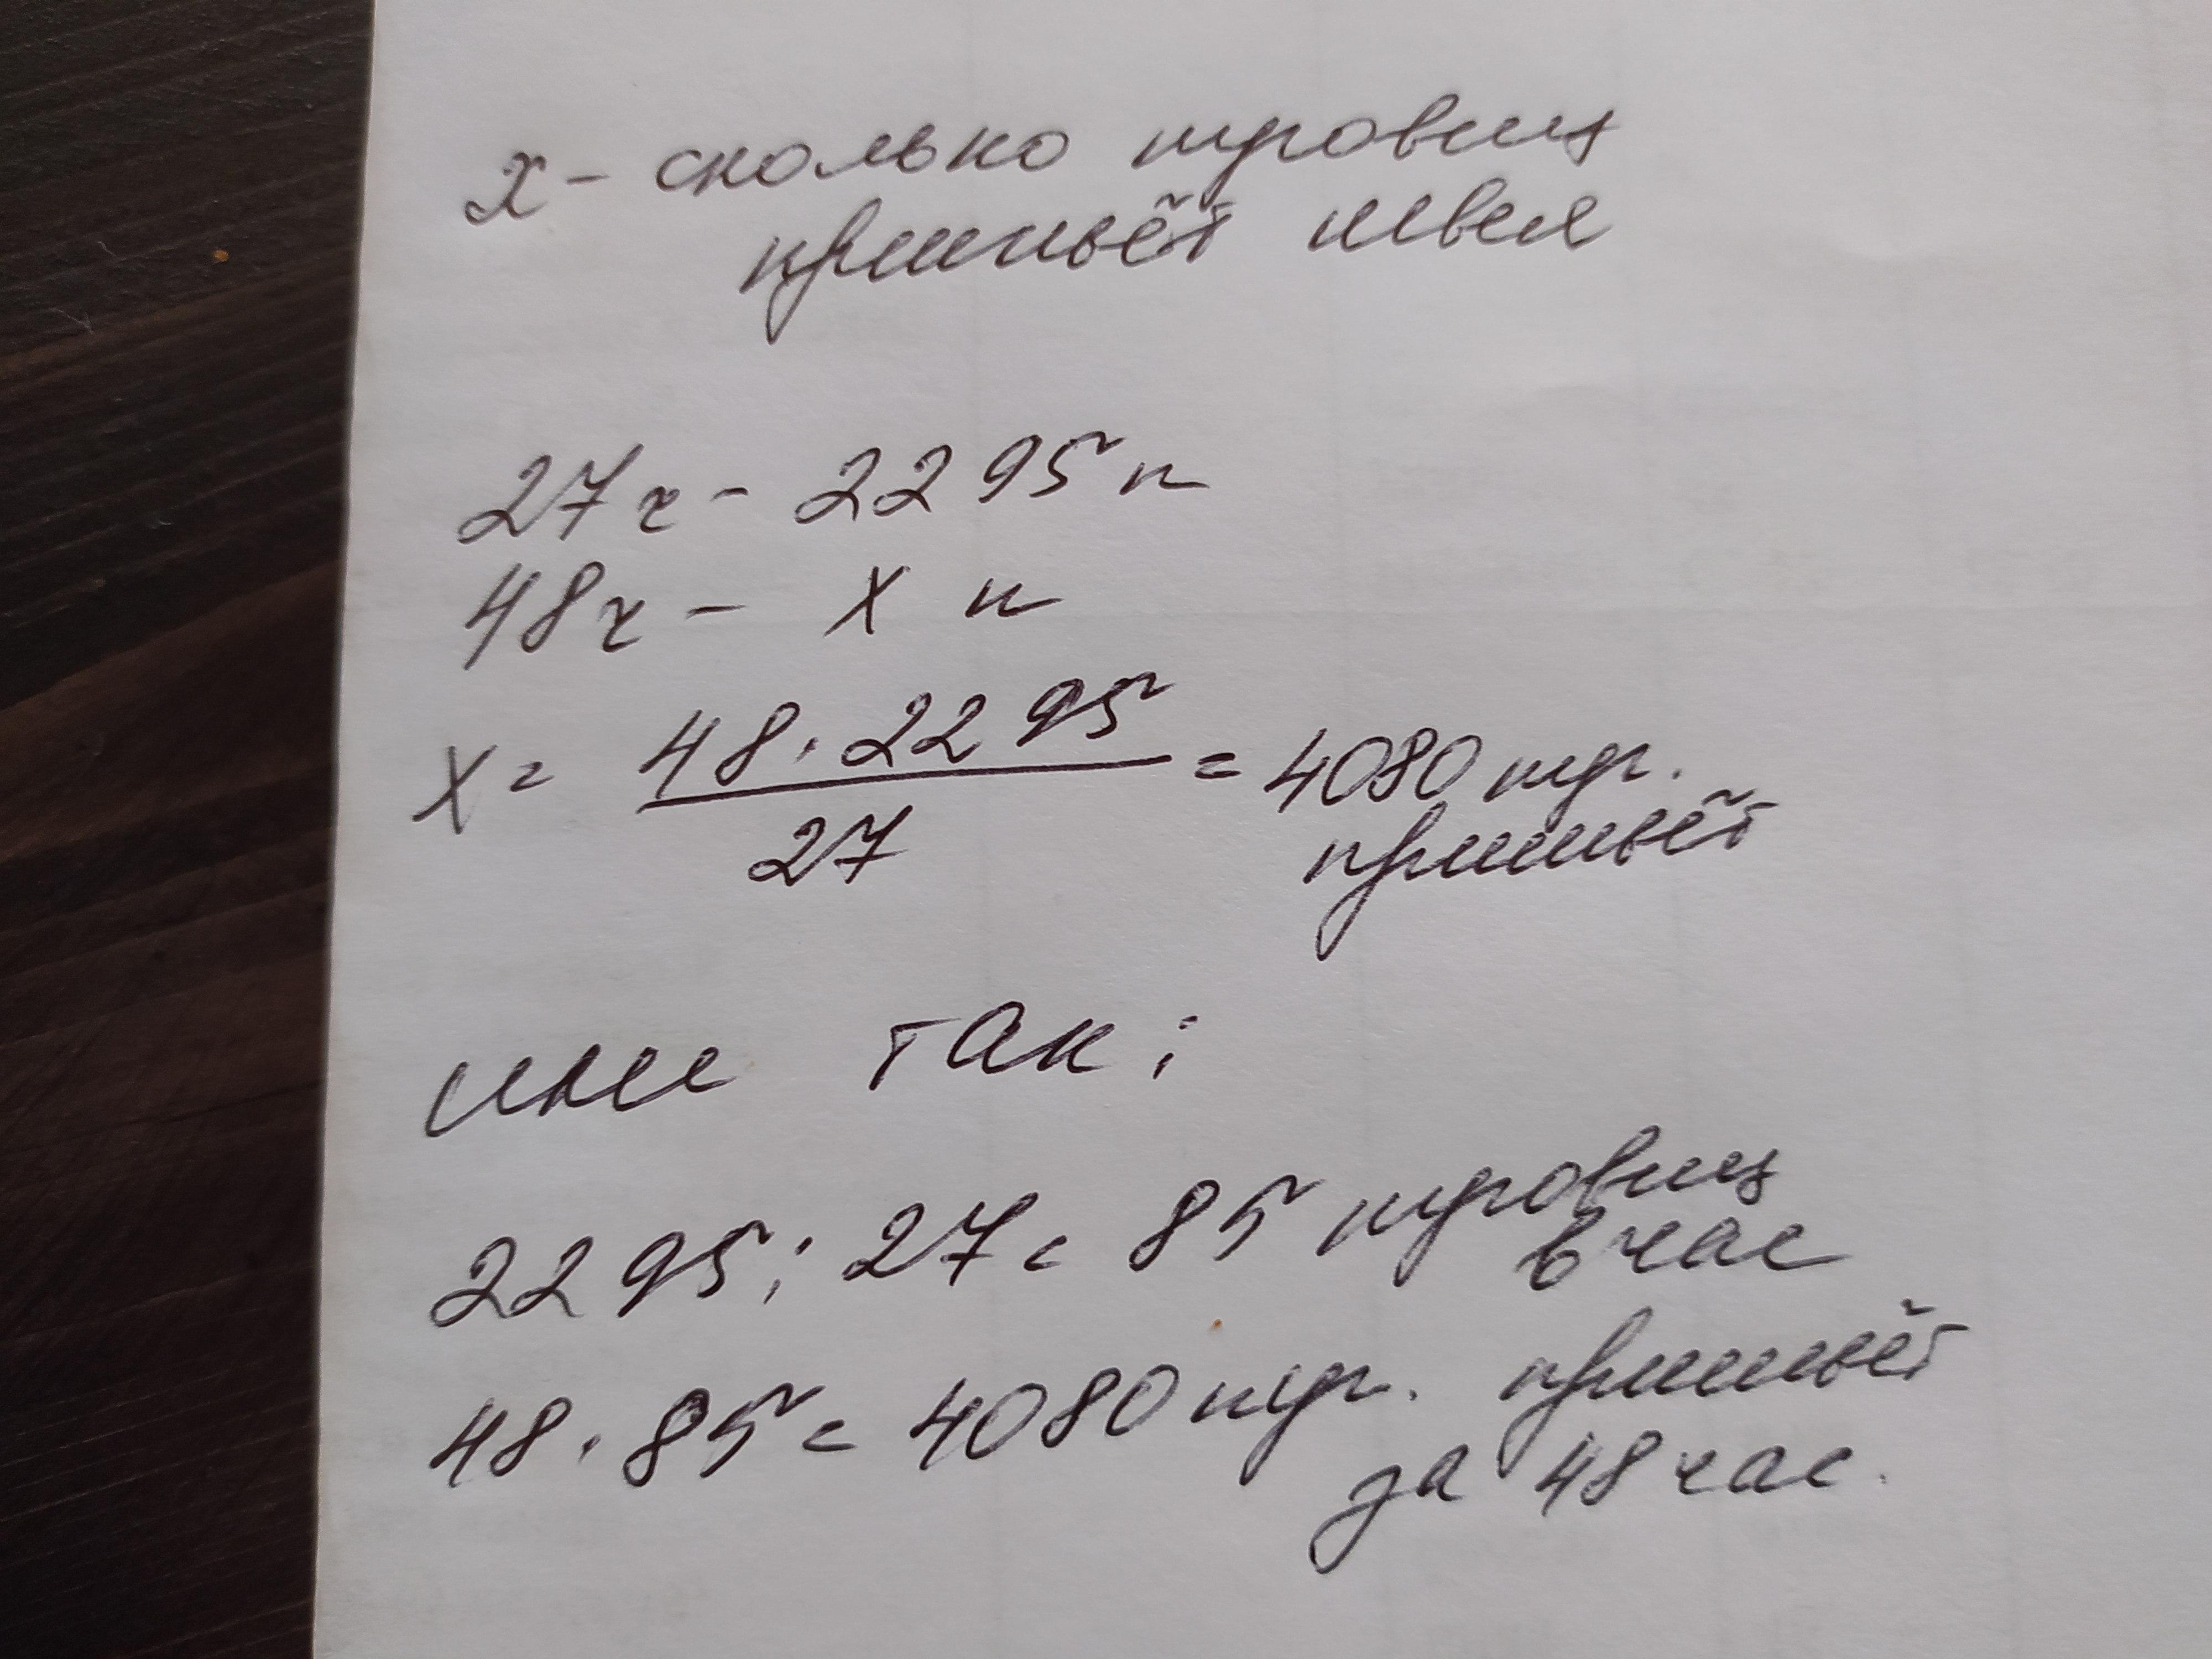 x - сколько пуговиц
пришьёт швея
27ч - 2295 п
48ч - x п
x = 48 · 2295 / 27 = 4080 пуг.
пришьёт
или так:
2295 : 27 = 85 пуговиц
в час
48 · 85 = 4080 пуг. пришьёт
за 48 час.